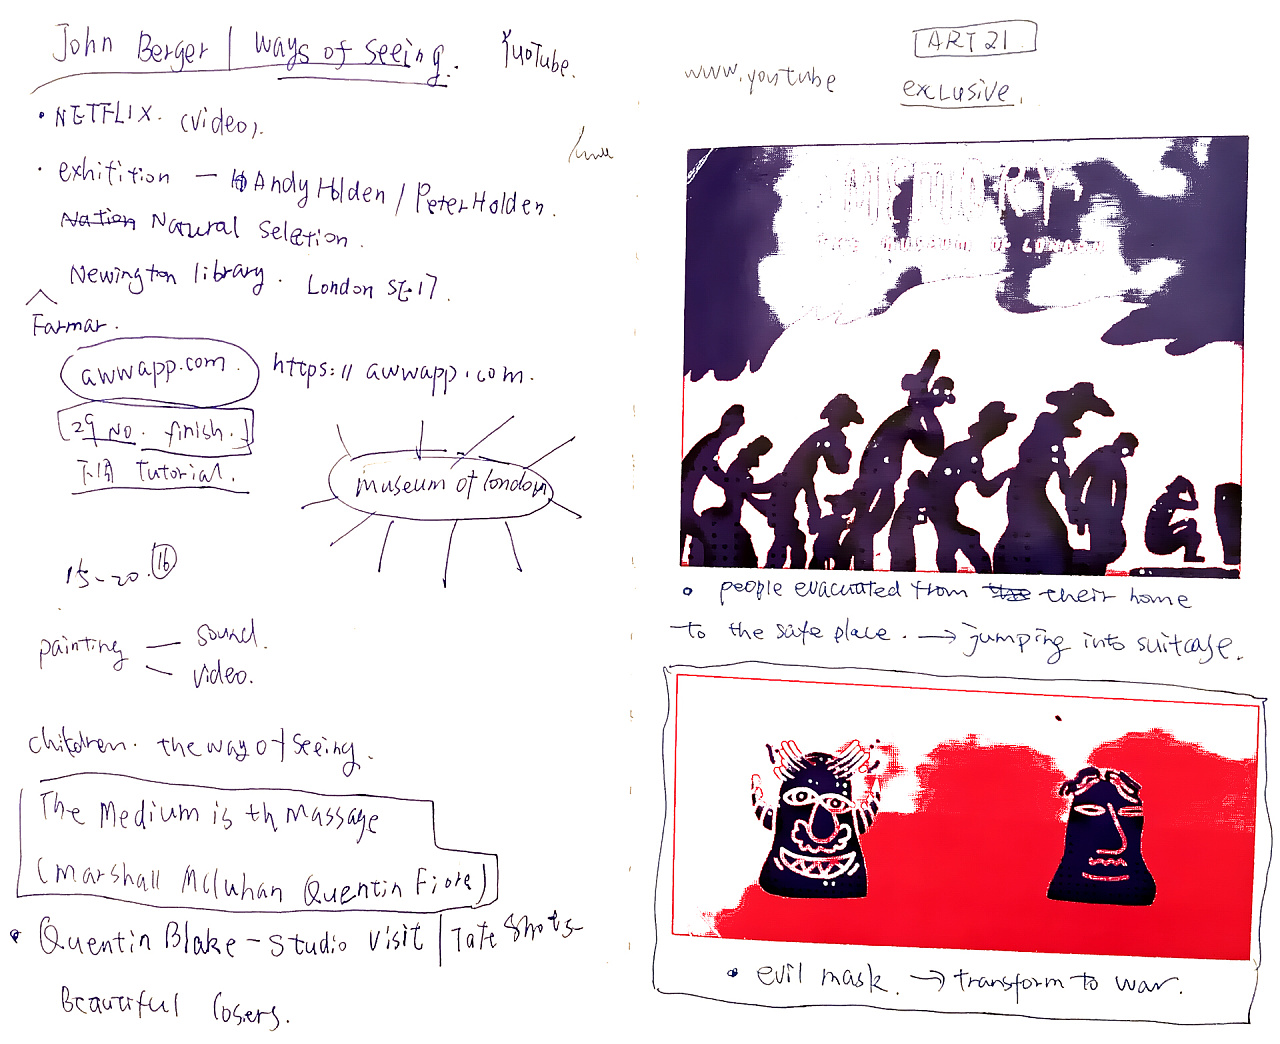 John Berger | ways of seeing. YuoTube.
• NETFLIX. (video).
• exhitition — Andy Holden / Peter Holden.
Nation Natural Seletion.
Newington library. London SE17.
Farmar.
awwapp.com. https://awwapp.com.
29 No. finish.
下周 Tutorial.
museum of london
15-20. 16
painting — sound.
— video.
children. the way of seeing.
The Medium is th Massage
(Marshall Mcluhan Quentin Fiore)
• Quentin Blake - studio visit | Tate Shots-
Beautiful losers.
ART 21
www.youtube exclusive.
THE MUSEUM OF LONDON
• people evacuated from their home
to the safe place. → jumping into suitcase.
• evil mask. → transform to war.